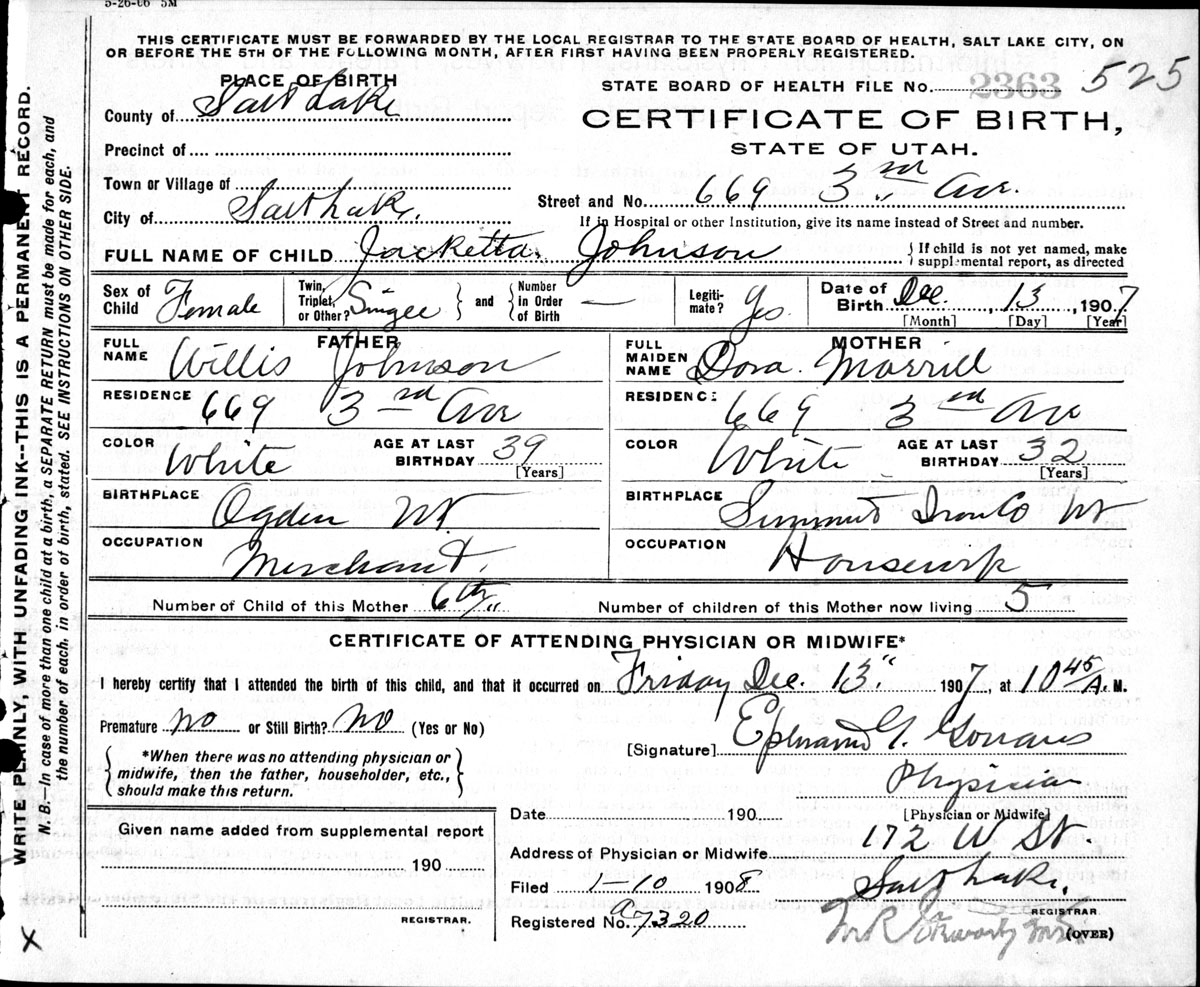 5-26-06 5M
THIS CERTIFICATE MUST BE FORWARDED BY THE LOCAL REGISTRAR TO THE STATE BOARD OF HEALTH, SALT LAKE CITY, ON
OR BEFORE THE 5TH OF THE FOLLOWING MONTH, AFTER FIRST HAVING BEEN PROPERLY REGISTERED.
PLACE OF BIRTH
STATE BOARD OF HEALTH FILE NO. 2363 525
County of Salt Lake
CERTIFICATE OF BIRTH,
Precinct of
STATE OF UTAH.
Town or Village of
Street and No. 669 3rd Ave.
City of Salt Lake.
If in Hospital or other Institution, give its name instead of Street and number.
FULL NAME OF CHILD Jacketta Johnson { If child is not yet named, make supplemental report, as directed
Sex of Child Female Twin, Triplet, or Other? Single and Number in Order of Birth — Legitimate? Yes. Date of Birth Dec. 13, 1907
[Month] [Day] [Year]
FATHER
FULL NAME Willis Johnson
RESIDENCE 669 3rd Ave
COLOR White AGE AT LAST BIRTHDAY 39 [Years]
BIRTHPLACE Ogden Ut
OCCUPATION Merchant.
MOTHER
FULL MAIDEN NAME Dora Morrill
RESIDENCE 669 3rd Av
COLOR White AGE AT LAST BIRTHDAY 32 [Years]
BIRTHPLACE Summit Iron Co Ut
OCCUPATION Housewk
Number of Child of this Mother 6th Number of children of this Mother now living 5
CERTIFICATE OF ATTENDING PHYSICIAN OR MIDWIFE*
I hereby certify that I attended the birth of this child, and that it occurred on Friday Dec. 13" 1907, at 10 45 A. M.
Premature no or Still Birth? No (Yes or No)
[Signature] Ephraim G. Gowans
*When there was no attending physician or midwife, then the father, householder, etc., should make this return.
Physician
[Physician or Midwife]
Date 190
Given name added from supplemental report
190
REGISTRAR.
Address of Physician or Midwife 172 W St.
Salt Lake.
Filed 1-10 1908
REGISTRAR
Registered No. a7320
(OVER)
WRITE PLAINLY, WITH UNFADING INK--THIS IS A PERMANENT RECORD.
N. B.—In case of more than one child at a birth, a SEPARATE RETURN must be made for each, and
the number of each, in order of birth, stated. SEE INSTRUCTIONS ON OTHER SIDE.
X